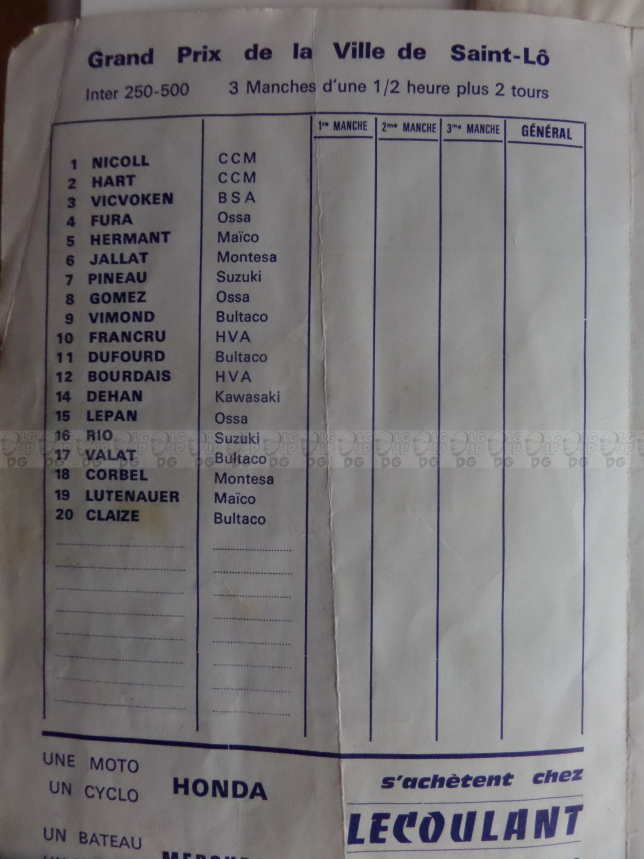 Grand Prix de la Ville de Saint-Lô
Inter 250-500 3 Manches d'une 1/2 heure plus 2 tours
1re MANCHE 2me MANCHE 3me MANCHE GÉNÉRAL
1 NICOLL CCM
2 HART CCM
3 VICVOKEN BSA
4 FURA Ossa
5 HERMANT Maïco
6 JALLAT Montesa
7 PINEAU Suzuki
8 GOMEZ Ossa
9 VIMOND Bultaco
10 FRANCRU HVA
11 DUFOURD Bultaco
12 BOURDAIS HVA
14 DEHAN Kawasaki
15 LEPAN Ossa
16 RIO Suzuki
17 VALAT Bultaco
18 CORBEL Montesa
19 LUTENAUER Maïco
20 CLAIZE Bultaco
UNE MOTO
UN CYCLO HONDA s'achètent chez
LECOULANT
UN BATEAU